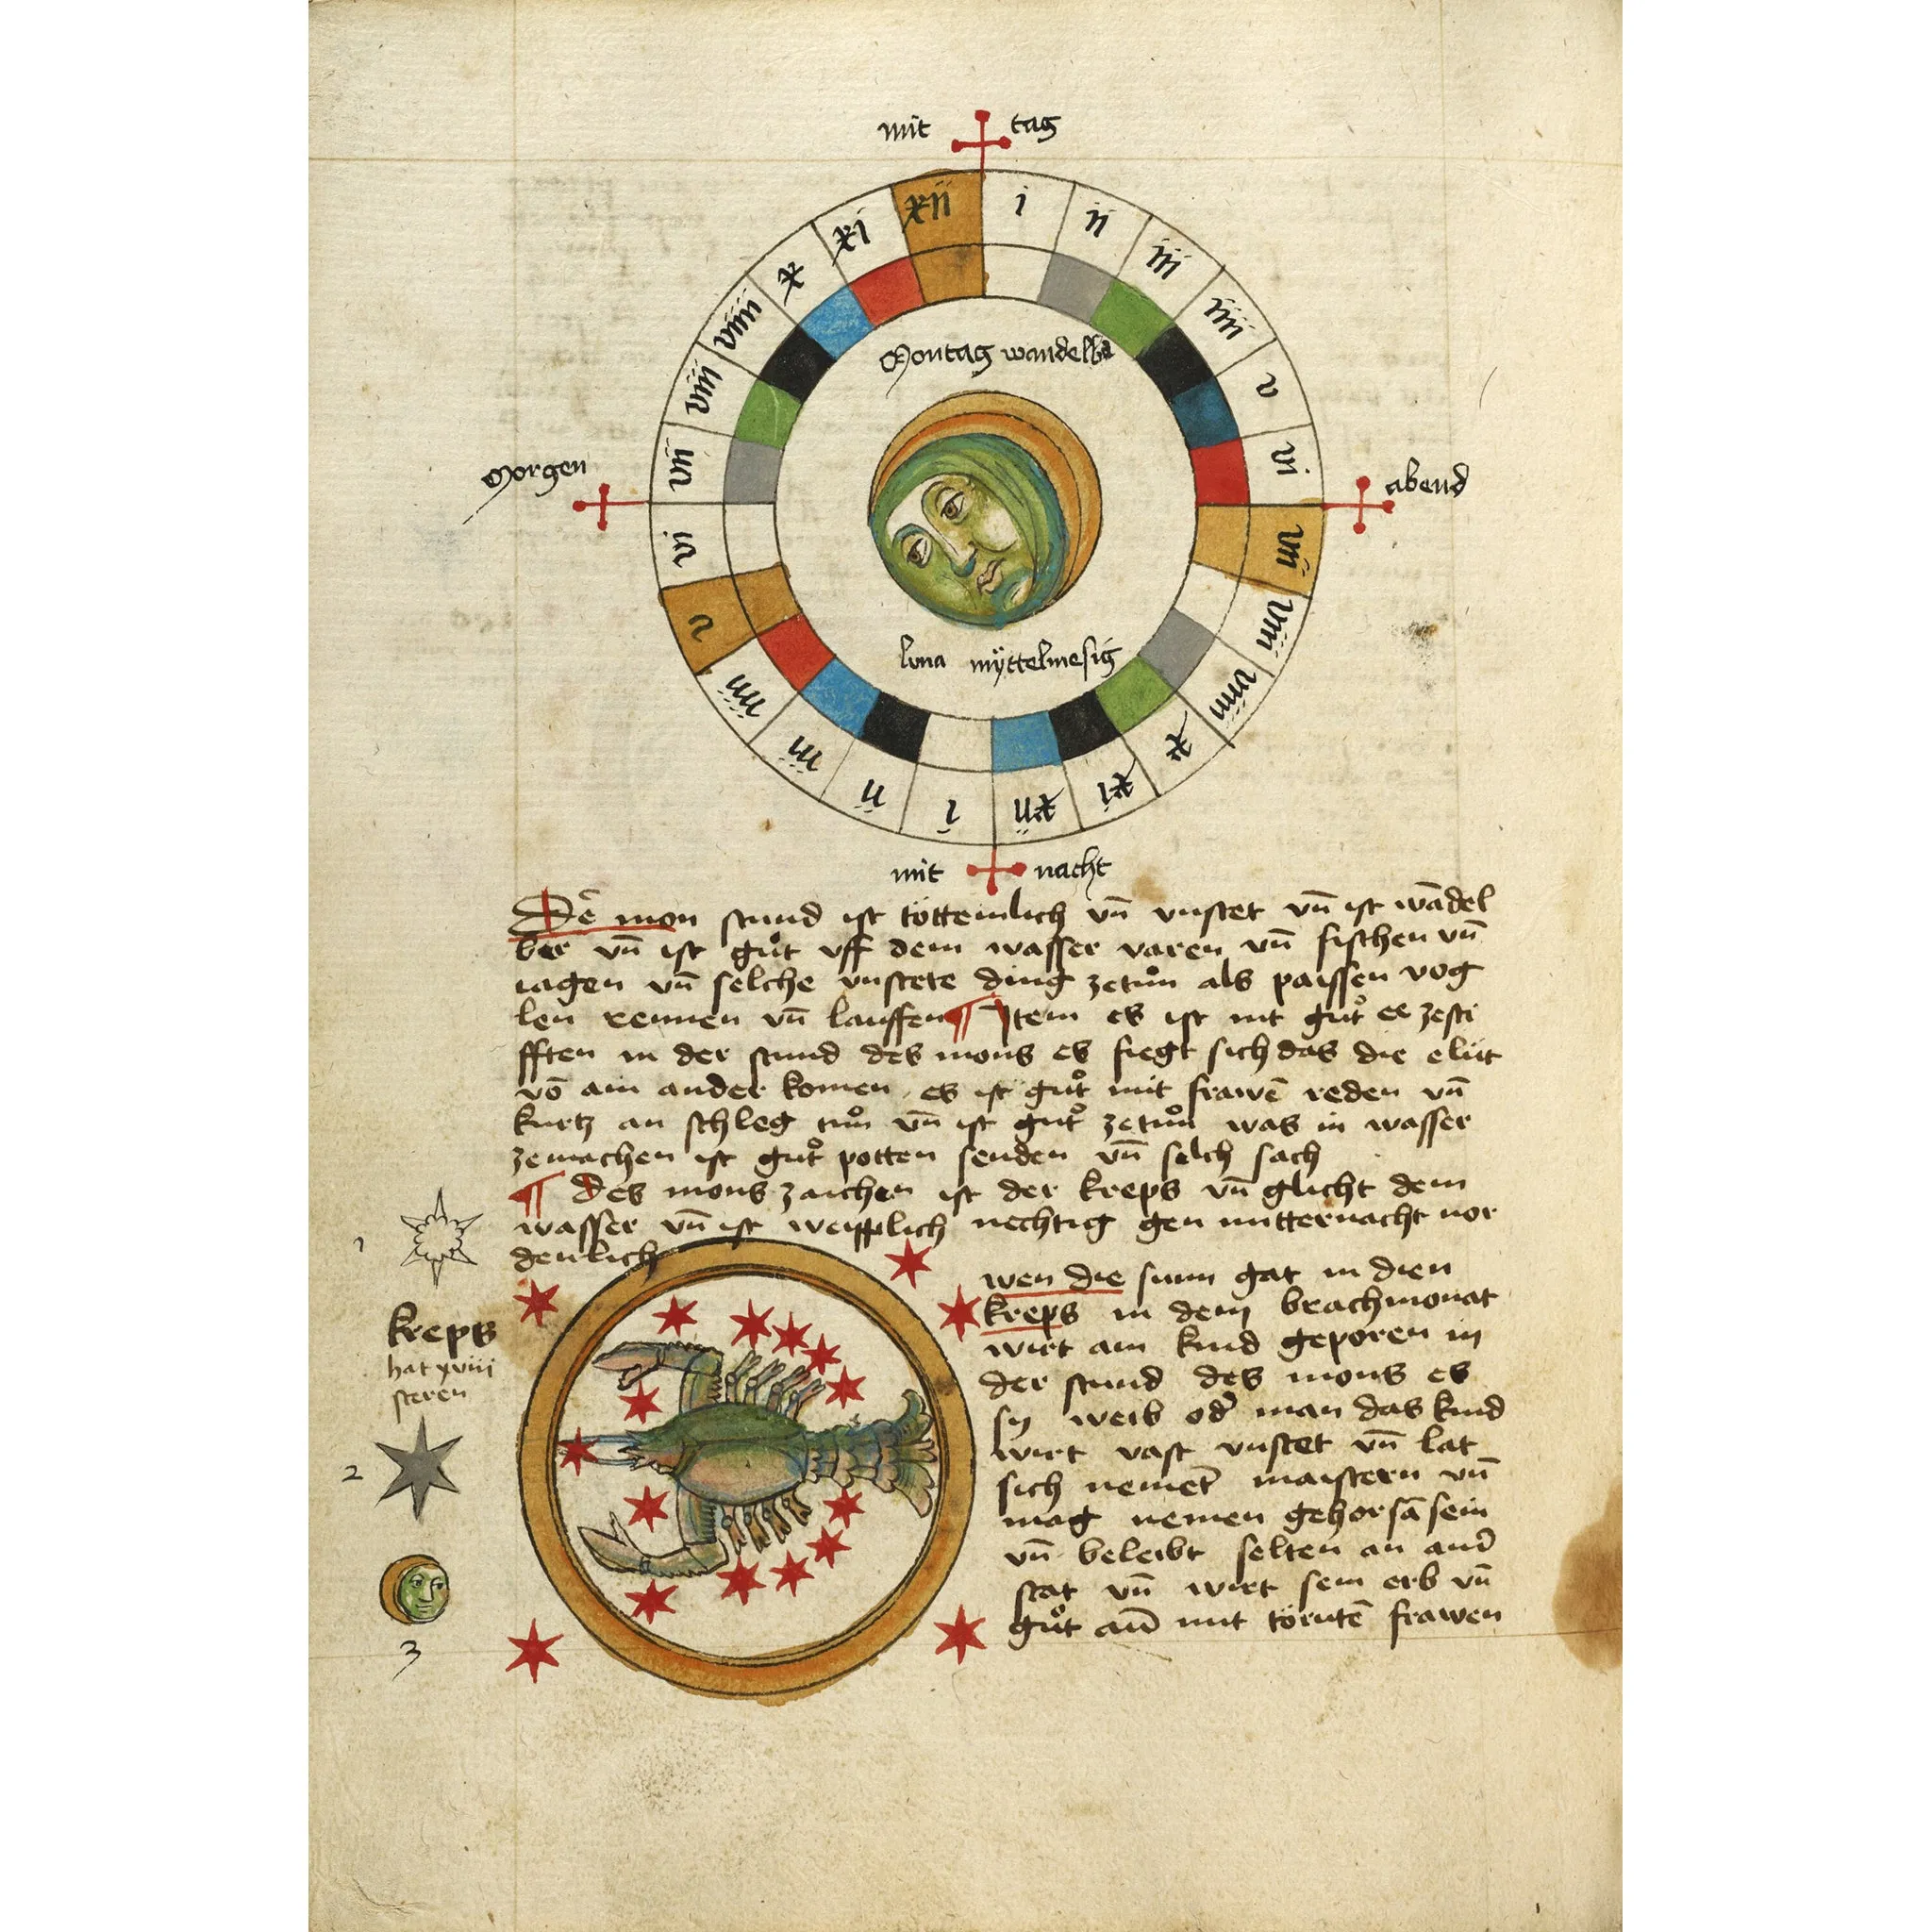 mit tag
i ii iii iiii v vi vii viii viiii x xi xii
i ii iii iiii v vi vii viii viiii x xi xii
Montag wandelbar
Morgen
abend
luna myttelmesig
mit nacht
Dē mon stund ist töttemlich vn̄ vnstet vn̄ ist wādel
ber vn̄ ist gůt vff dem wasser varen vn̄ fischen vn̄
iagen vn̄ sölche vnstete ding zetůn als paissen vog
len rennen vn̄ lauffen ¶ Item es ist nit gůt ee zesti
fften in der stund des mons es fiegt sich das die elüt
vō ain ander komen es ist gůt mit frawē reden vn̄
kurtz an schleg tůn vn̄ ist gůt zetůn was in wasser
zemachen ist gůt potten senden vn̄ sölch sach
¶ des mons zaichen ist der kreps vn̄ glicht dem
wasser vn̄ ist weipplich nechtig gen mitternacht nor
denlich
1
kreps
hat xviii
steren
2
3
wen die sunn gat in dien
kreps in dem brachmonat
wirt ain kind geporen in
der stund des mons es
sy weib od' man das kind
wirt vast vnstet vn̄ lat
sich nemet maistern vn̄
mag nemen gehorsā sein
vn̄ beleibt selten an and'
stat vn̄ wirt sem erb vn̄
gůt mit törntē frawen